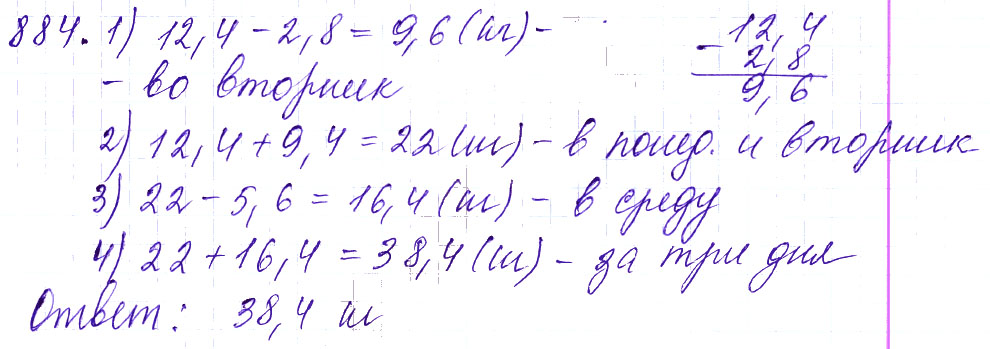 884. 1) 12,4 - 2,8 = 9,6 (м) -
- во вторник
12,4
- 2,8
9,6
2) 12,4 + 9,4 = 22 (м) - в понед. и вторник
3) 22 - 5,6 = 16,4 (м) - в среду
4) 22 + 16,4 = 38,4 (м) - за три дня
Ответ: 38,4 м